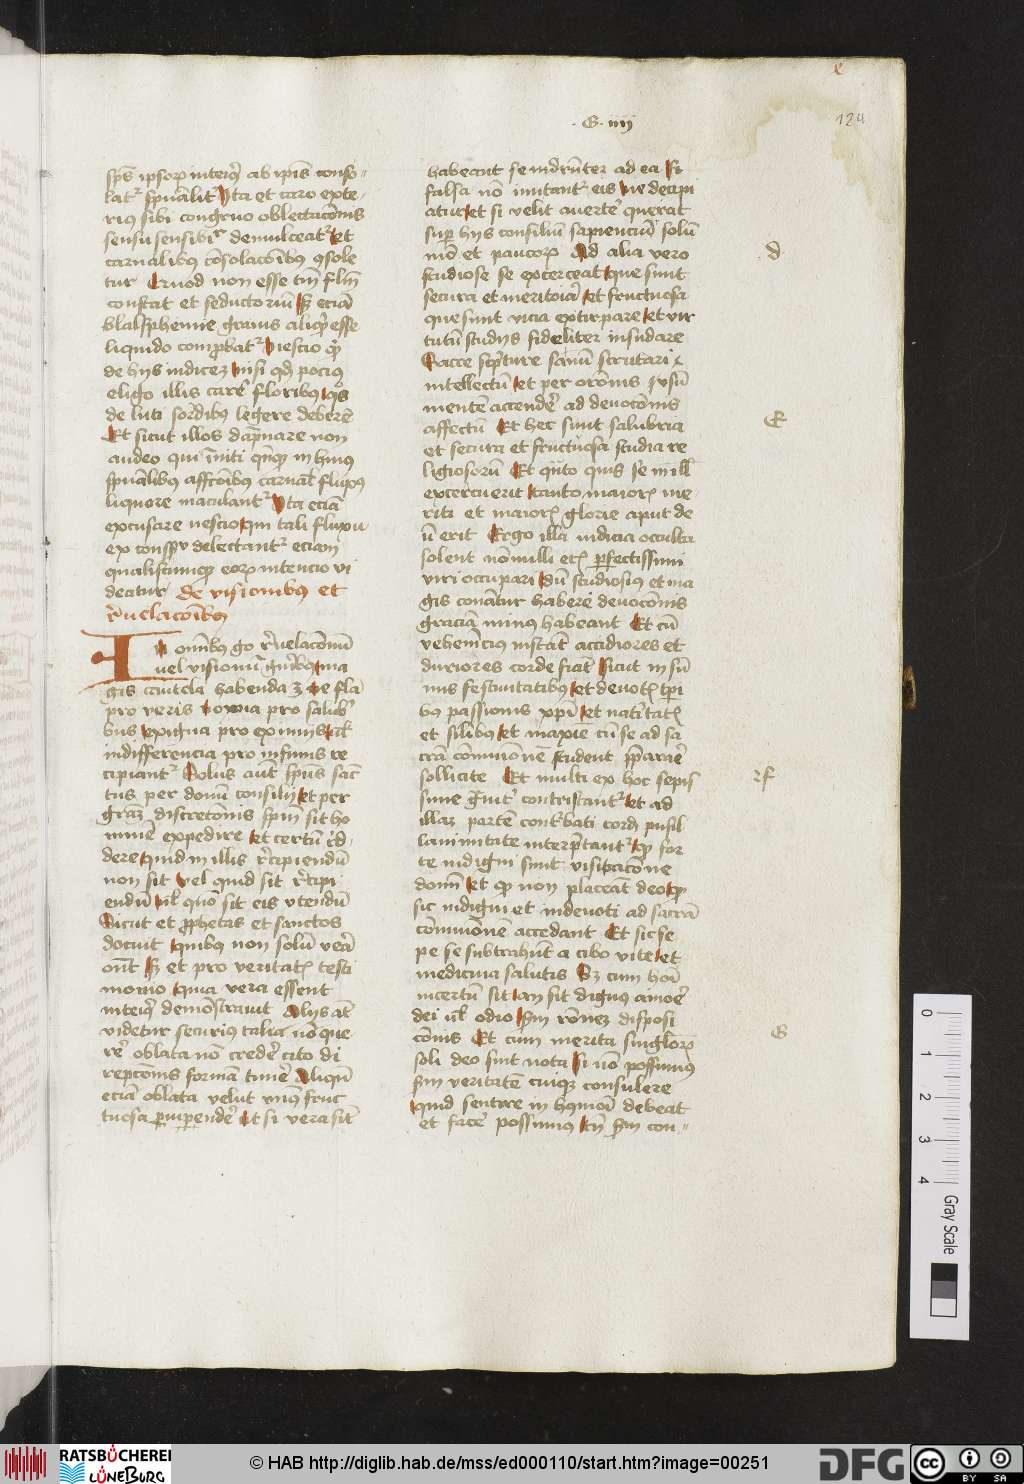 e
124
.G. iiij
sps ipsorum interius ab ipsis conso-
latur spiritualiter Ita et caro exte-
rius sibi congruo oblectacionis
sensu sensibiliter demulceatur et
carnalibus consolacionibus console
tur Quod non esse tantum falsum
constat et seductorium sed eciam
blasphemie grauis aliquid esse
liquido comprobatur Nescio quid
de hys iudicem nisi quod pocius
eligo illis carere floribus quos
de luti sordibus legere deberem
Et sicut illos dampnare non
audeo qui inuiti quandoque in huius
spiritualibus affectionibus carnalis fluxus
liquore maculantur Ita eciam
excusare nescio qui in tali fluxu
ex consensu delectantur eciam
qualiscumque eorum intencio vi
deatur De visionibus et
reuelacionibus
In omnibus ergo reuelacionum
vel visionum generibus ma
gis cautela habenda est ne falsa
pro veris noxia pro salubri
bus exigua pro eximiis vel
indifferencia pro infimis re
cipiantur Solus autem spiritus sanc
tus per donum consilii et per
graciam discretionis spirituum sit ho
minem expedire et certum red
dere quid in illis recipiendum
non sit vel quid sit recipi
endum vel quomodo sit eis vtendum
Sicut et prophetas et sanctos
docuit quibus non solum vera
ostendit sed et pro veritatis testi
monio quia vera essent
interius demonstrauit Aliis autem
videtur securius talia non que
rere oblata non credere cito di
screpcionis formam timere Aliquando
eciam oblata velut minus fruc
tuosa paruipendere Et si vera sint
habeant se indifferenter ad ea si
falsa non imitantur eis ne decipi
atur et si velit auertere querat
super hys consilium sapiencium solum
modo et paucorum Ad alia vero
studiose se exerceat que sunt
secura et meritoria et fructuosa
que sunt vicia extirpare et vir
tutum studiis fideliter insudare
Sacre scripture sanum scrutari
intellectum et per oraciones ipsum
mentem accendere ad deuocionis
affectum Et hec sunt salubria
et secura et fructuosa studia re
ligiosorum Et quanto quis se in illis
exercuerit tanto maioris me
riti et maioris glorie aput de
um erit Ergo illa iudicia occulta
solent nonnulli eciam perfectissimi
viri occupari dum studiosius et ma
gis conantur habere deuocionis
graciam minus habeant Et cum
vehemencius instant accidiores et
duriores corde fiant Sicut in sum
mis festiuitatibus et deuotis tempori
bus passionis christi et natiuitatis
et similibus et maxime cum se ad sa
cram communionem student preparare
sollicite Et multi ex hoc sepis
sime grauiter contristantur et ad
illam partem conturbati cordis pusil
lanimitate interpretantur quod for
te indigni sunt visitacione
domini et quod non placeant deo quod
sic indigni et indeuoti ad sacram
communionem accedant Et sic se
pe se subtrahunt a cibo vite et
medicina salutis Sed cum homini
incertum sit an sit dignus amore
dei vel odio secundum racionem disposi
cionis Et cum merita singulorum
soli deo sint nota si non possumus
secundum veritatem cuique consulere
quid sentire in huiusmodi debeat
et facere possumus tamen secundum con-
d
E
f
G
0
1
2
3
4
Gray Scale
RATSBÜCHEREI
LÜNEBURG
© HAB http://diglib.hab.de/mss/ed000110/start.htm?image=00251
DFG
cc
BY SA